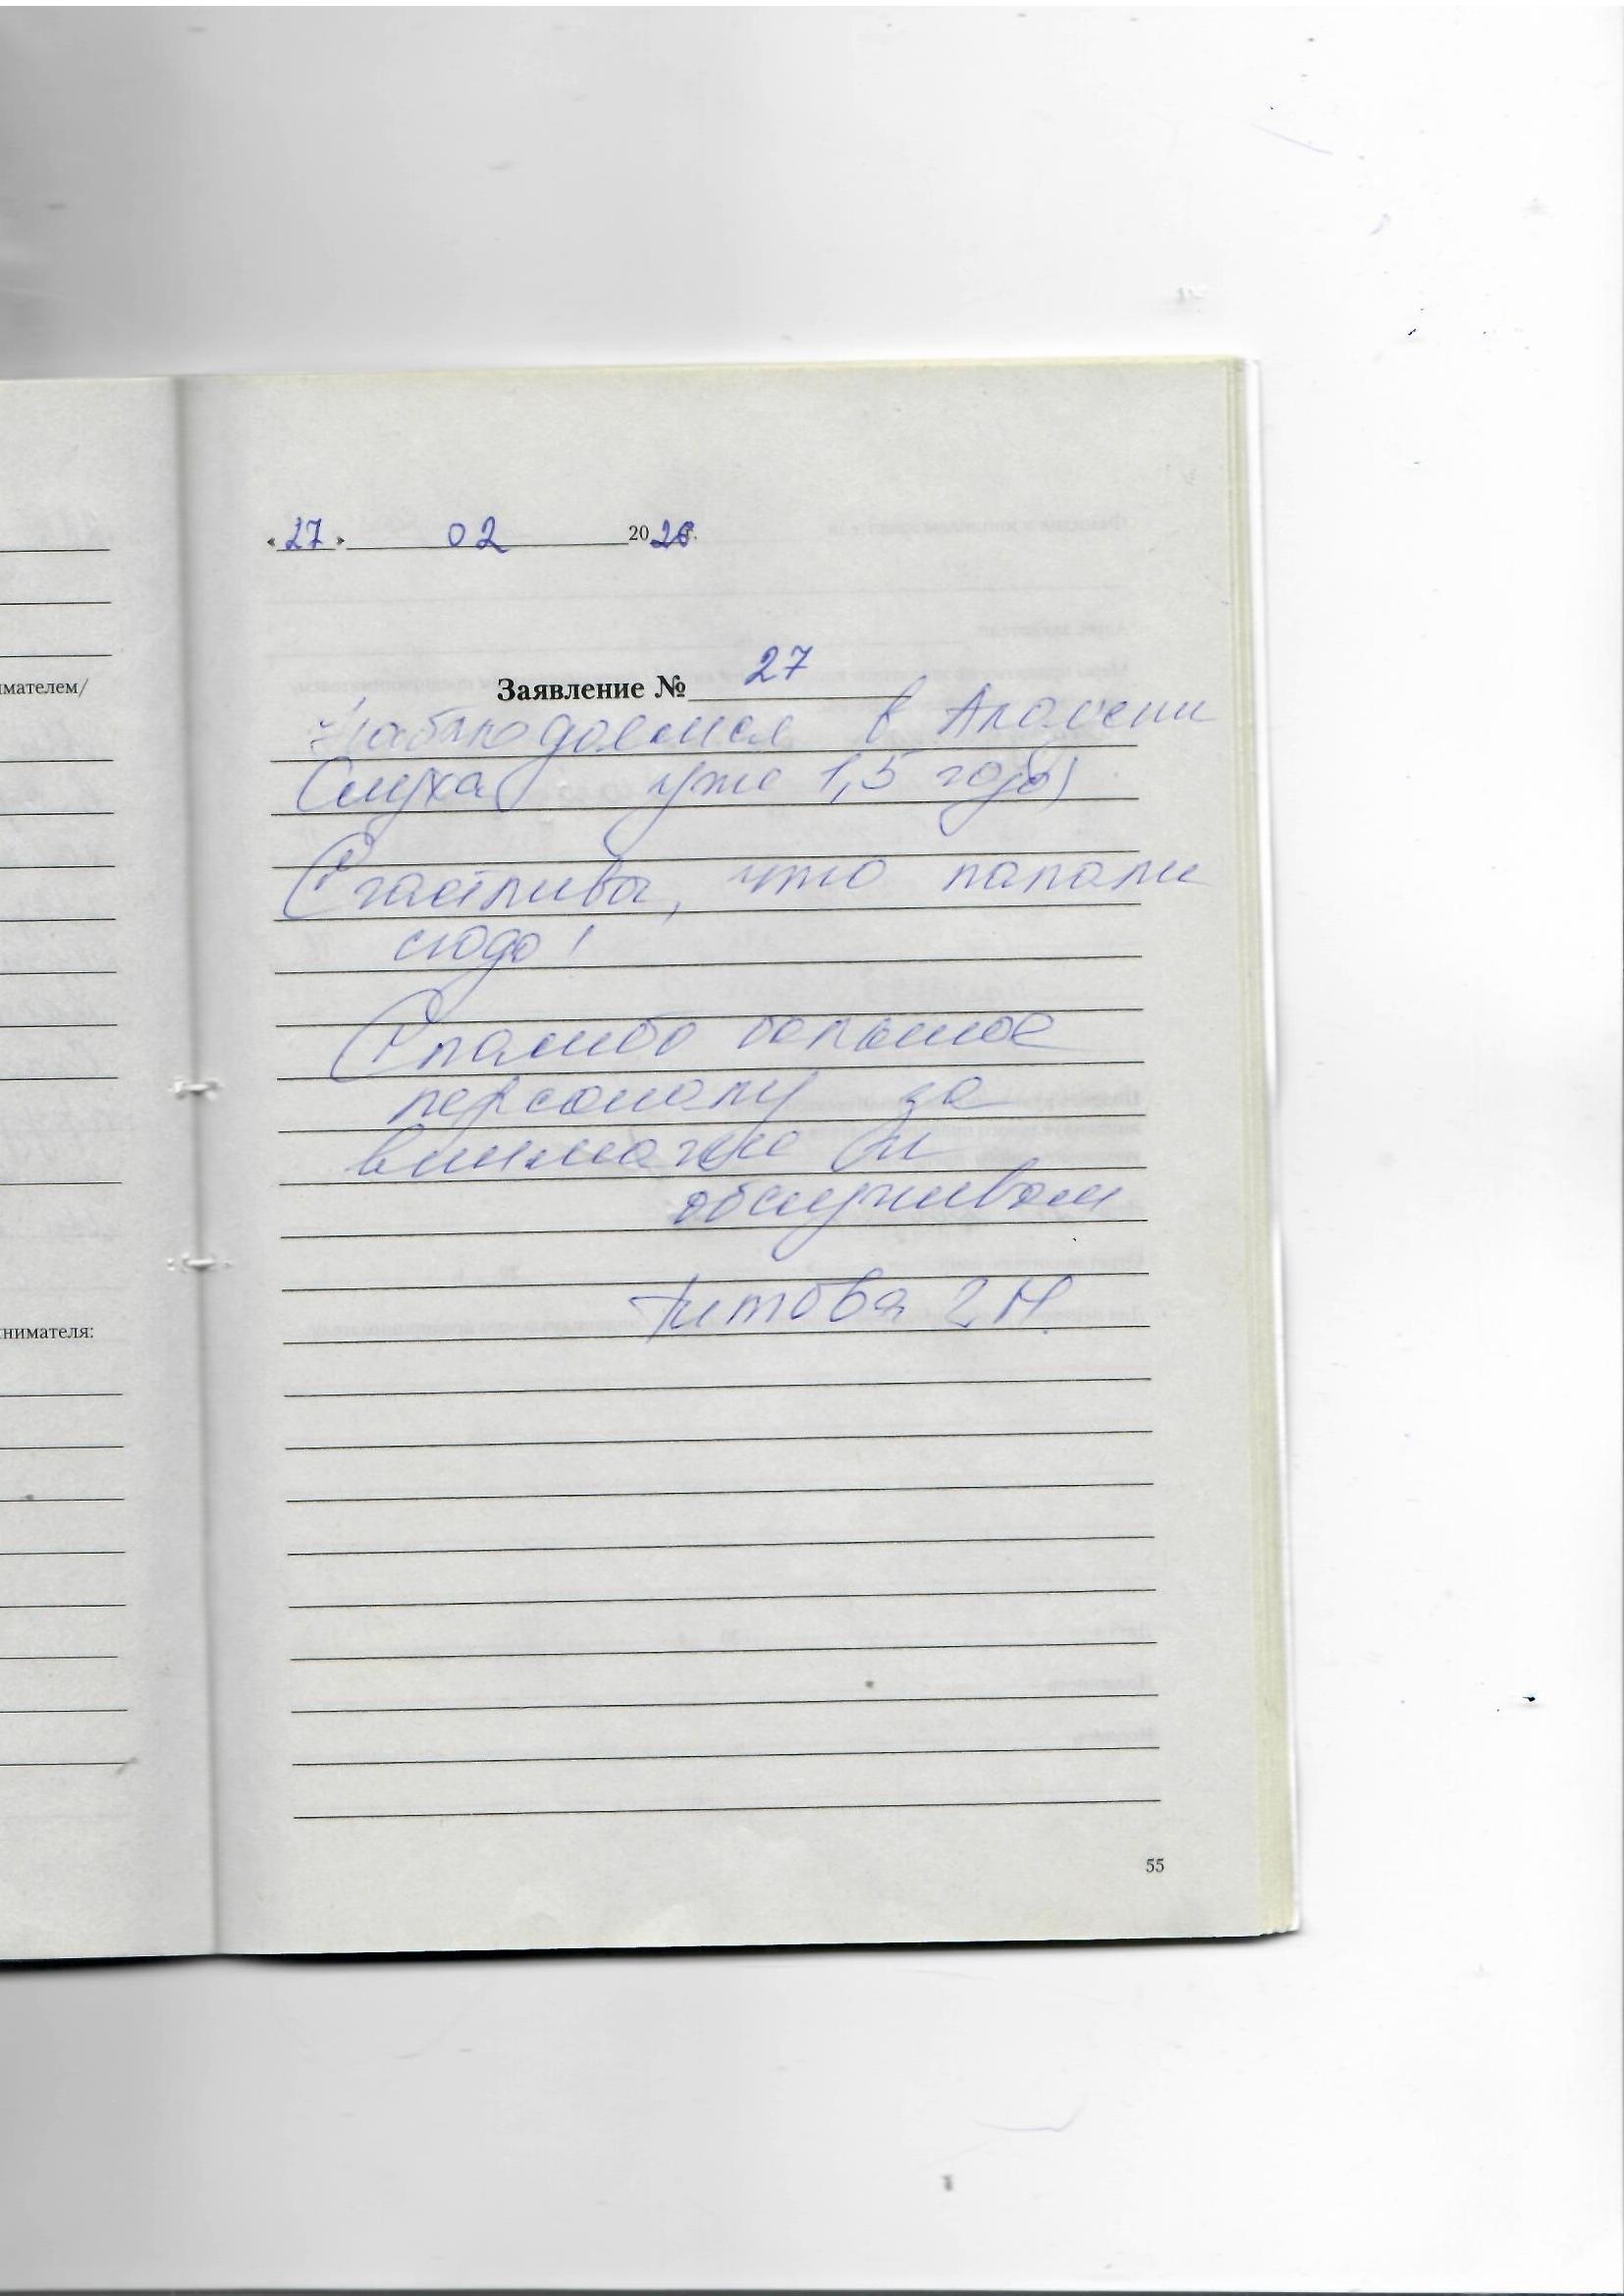 имателем/
нимателя:
«27» 02 2026г.
Заявление № 27
Наблюдаемся в Академии
Слуха уже 1,5 года)
Счастливы, что попали
сюда!
Спасибо большое
персоналу за
внимание и
обслуживан
Титова Г Н.
55